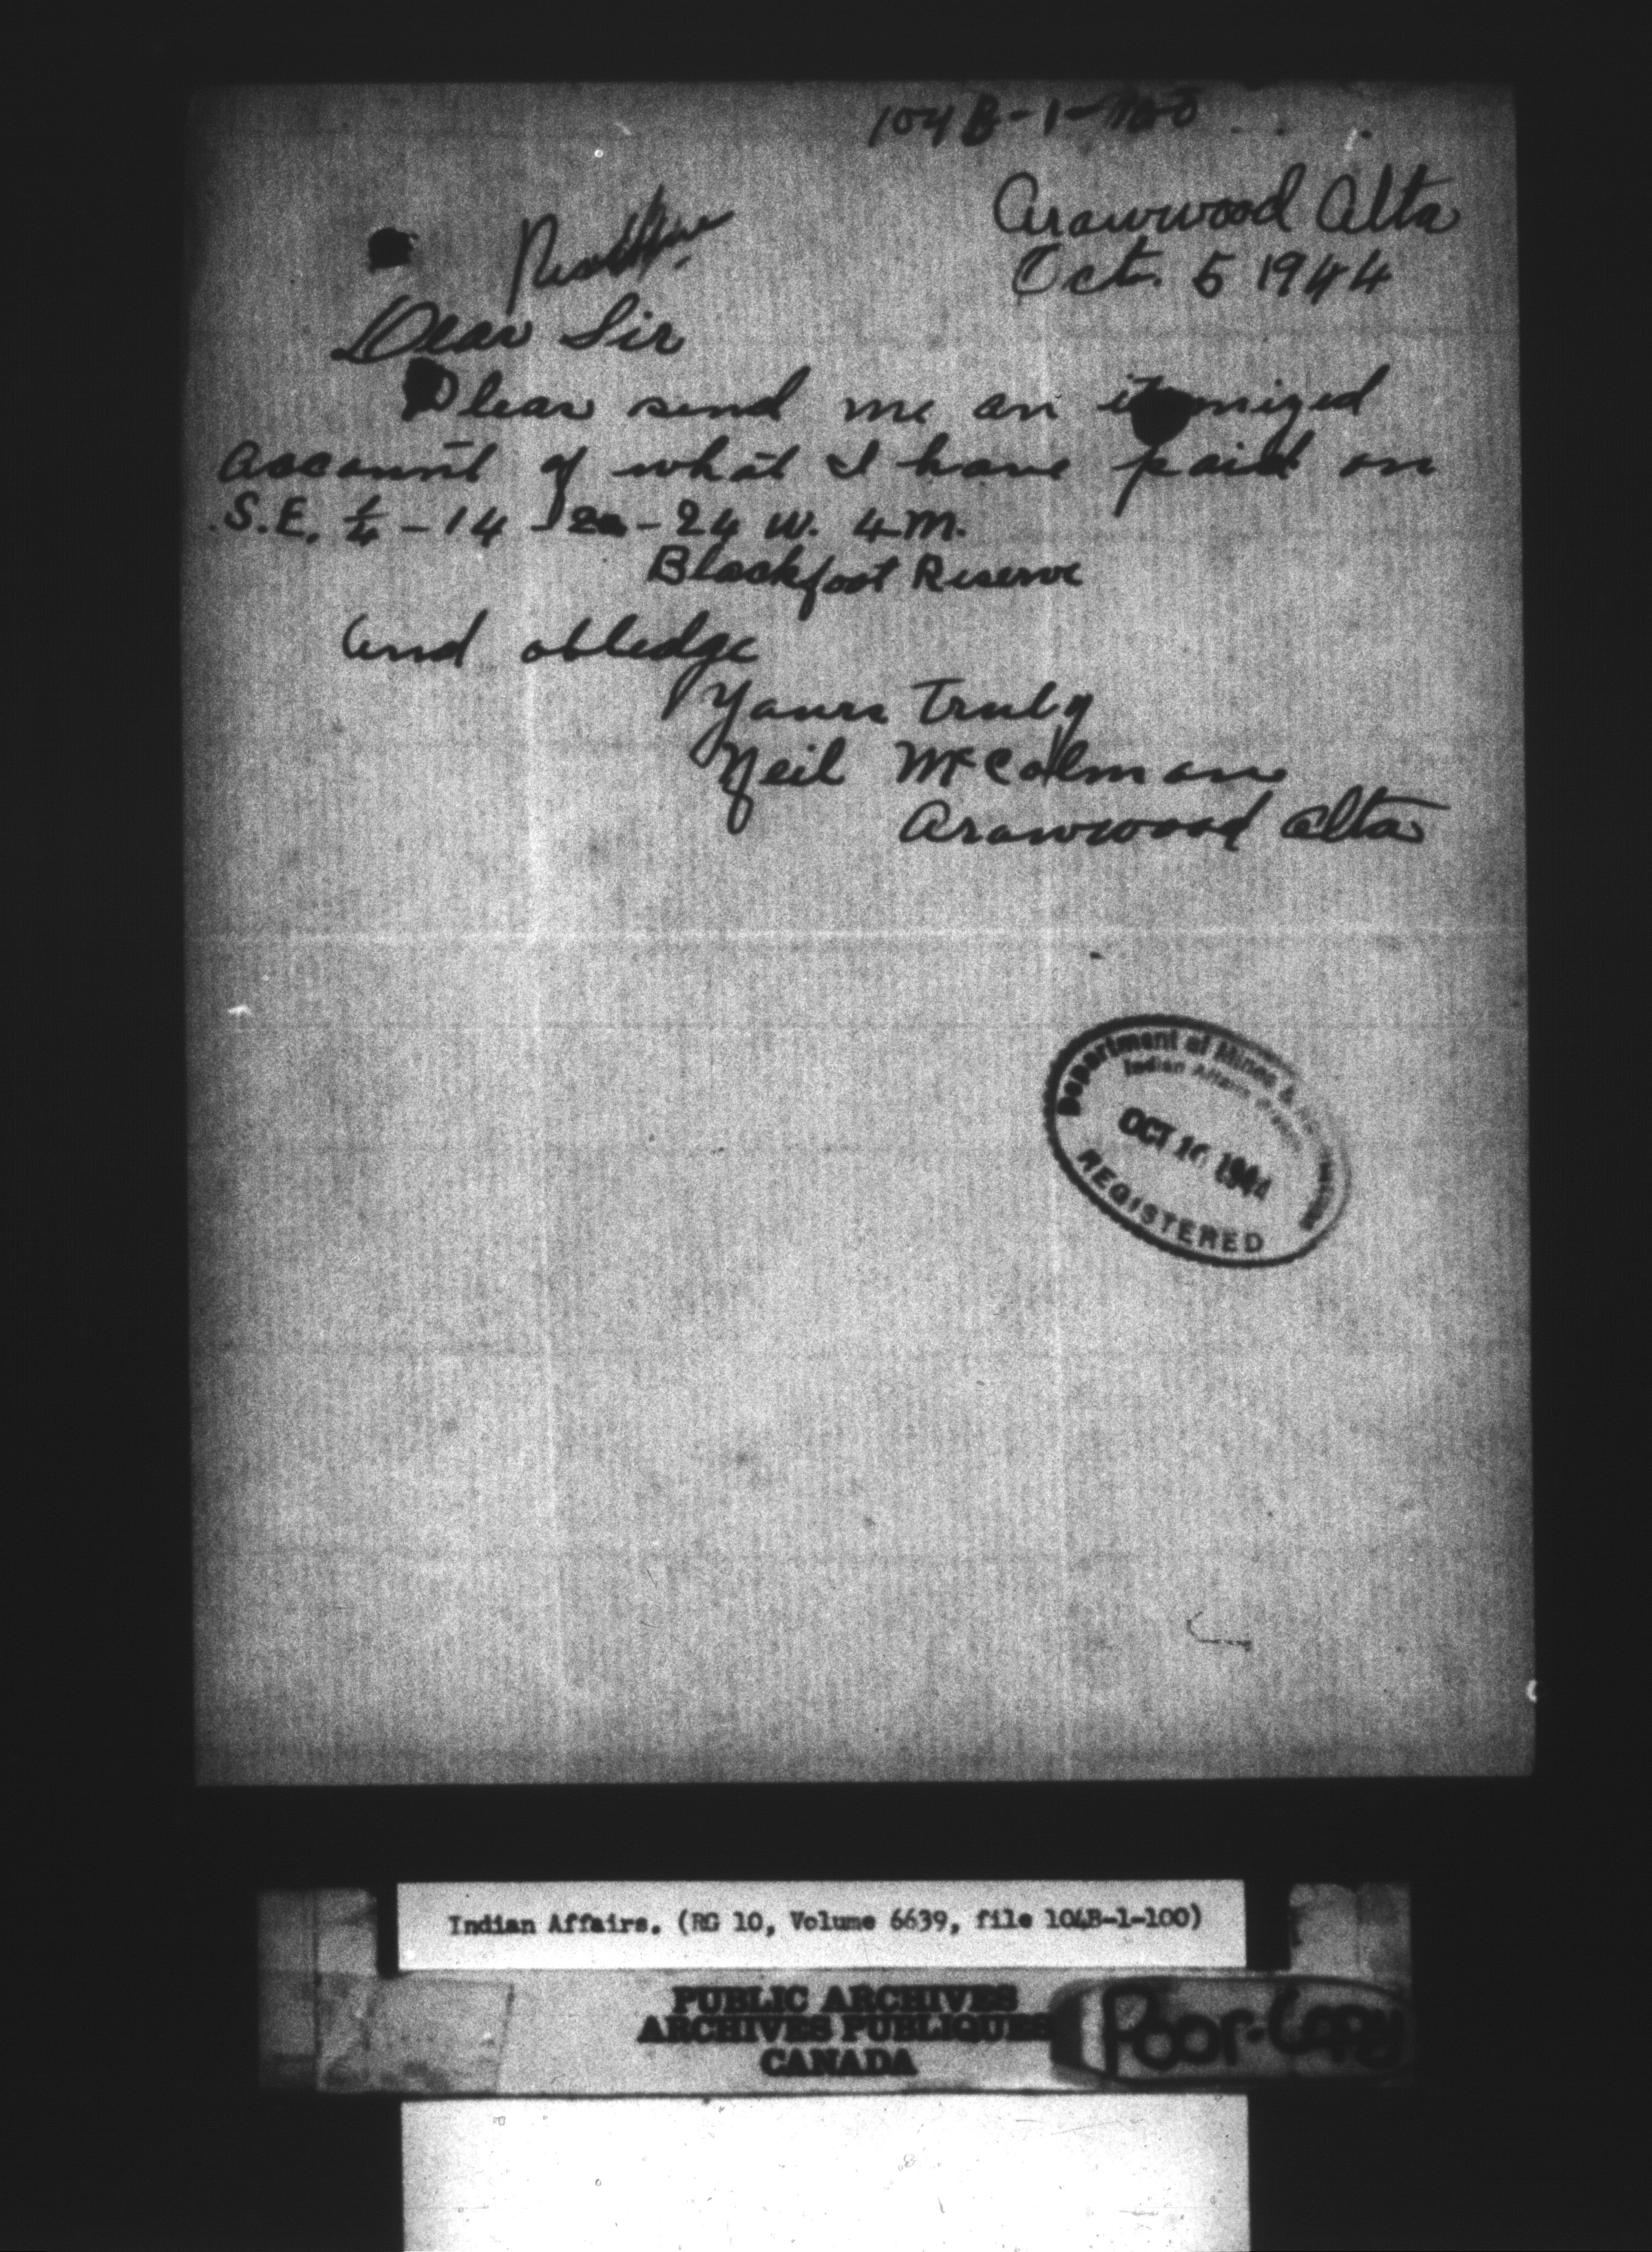 104B-1-
Arowwood Alta
Oct. 5 1944
Dear Sir
Pleas send me an itemized
account of what I have paid on
S.E. 1/4 - 14 - 20 - 24 W. 4 M.
Blackfoot Reserve
and obledge
Yours Truly
Neil McColman
Arowwood Alta
Department of Mines &
Indian Affairs
OCT 10 1944
REGISTERED
Indian Affairs. (RG 10, Volume 6639, file 104B-1-100)
PUBLIC ARCHIVES
ARCHIVES PUBLIQUES
CANADA
Poor-Copy